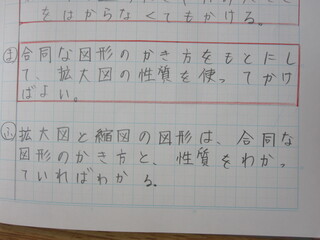 をはからなくてもかける。
ま 合同な図形のかき方をもとにし
て、拡大図の性質を使ってかけ
ばよい。
ふ 拡大図と縮図の図形は、合同な
図形のかき方と、性質をわかっ
ていればわかる。